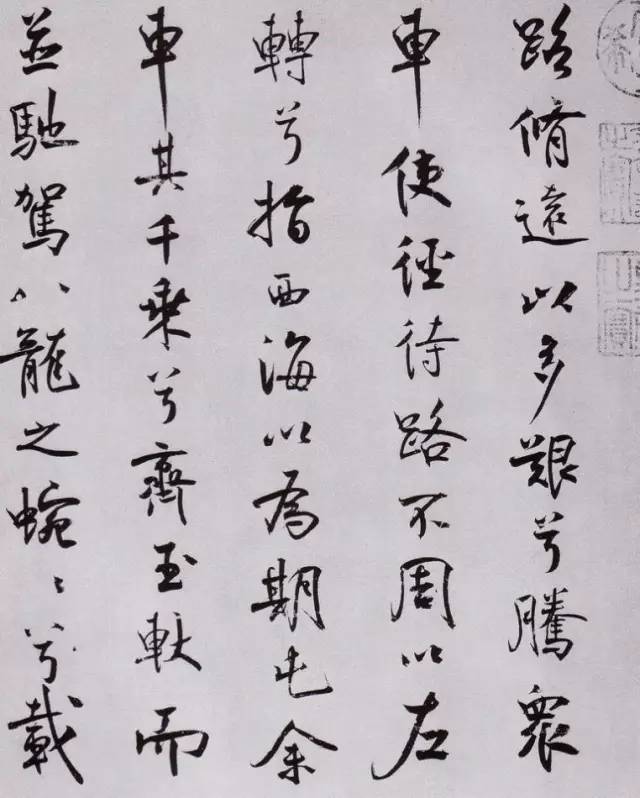 路脩遠以多艱兮騰衆
車使徑待路不周以左
轉兮指西海以為期屯余
車其千乗兮齊玉軑而
並馳駕八龍之蜿〻兮載